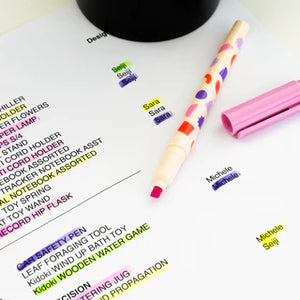 Desig
Seiji
Seiji
Seiji
HILLER
HOLDER
FLOWERS
PER LAMP
PS S/4
CORD HOLDER
I CORD HOLDER
NOTEBOOK ASST
TRACKER NOTEBOOK ASST
AL NOTEBOOK ASSORTED
TOY SPRING
AT TOY WAND
RECORD HIP FLASK
Sara
Sara
Sara
Michele
Michele
CAR SAFETY PEN
LEAF FORAGING TOOL
Kidoki WIND UP BATH TOY
Kidoki WOODEN WATER GAME
Michele
Seiji
ECISION
TERING JUG
D PROPAGATION